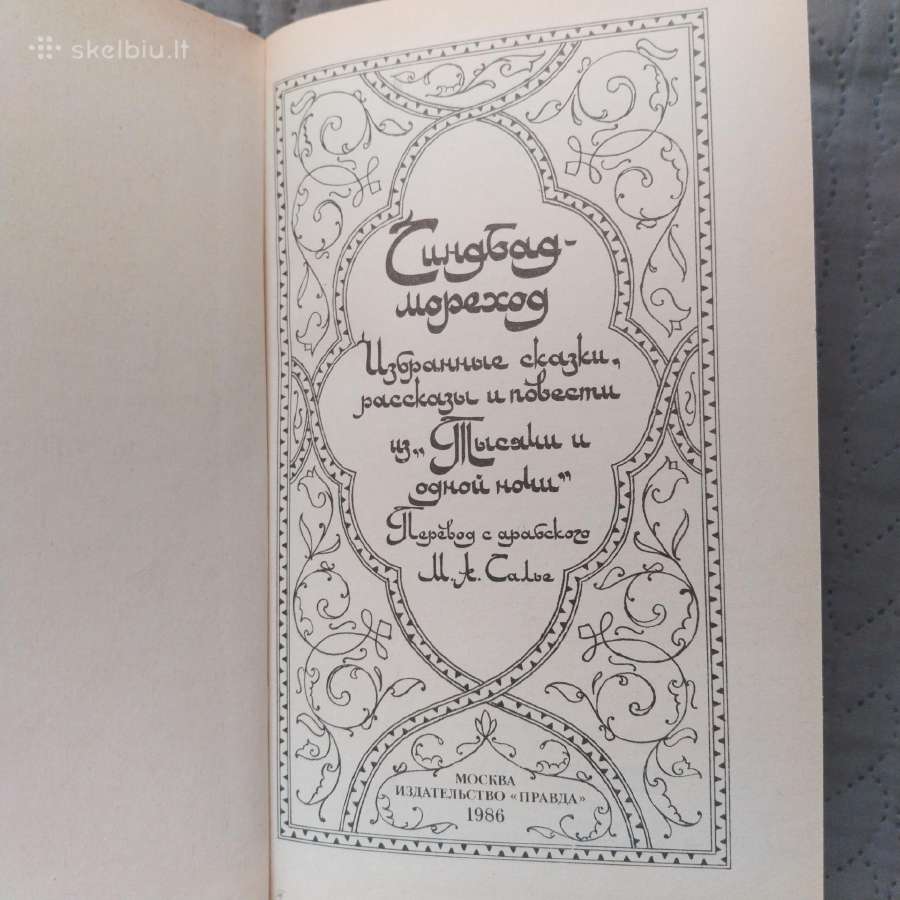 skelbiu.lt
Синдбад-
мореход
Избранные сказки,
рассказы и повести
из „Тысячи и
одной ночи“
Перевод с арабского
М. А. Салье
МОСКВА
ИЗДАТЕЛЬСТВО «ПРАВДА»
1986